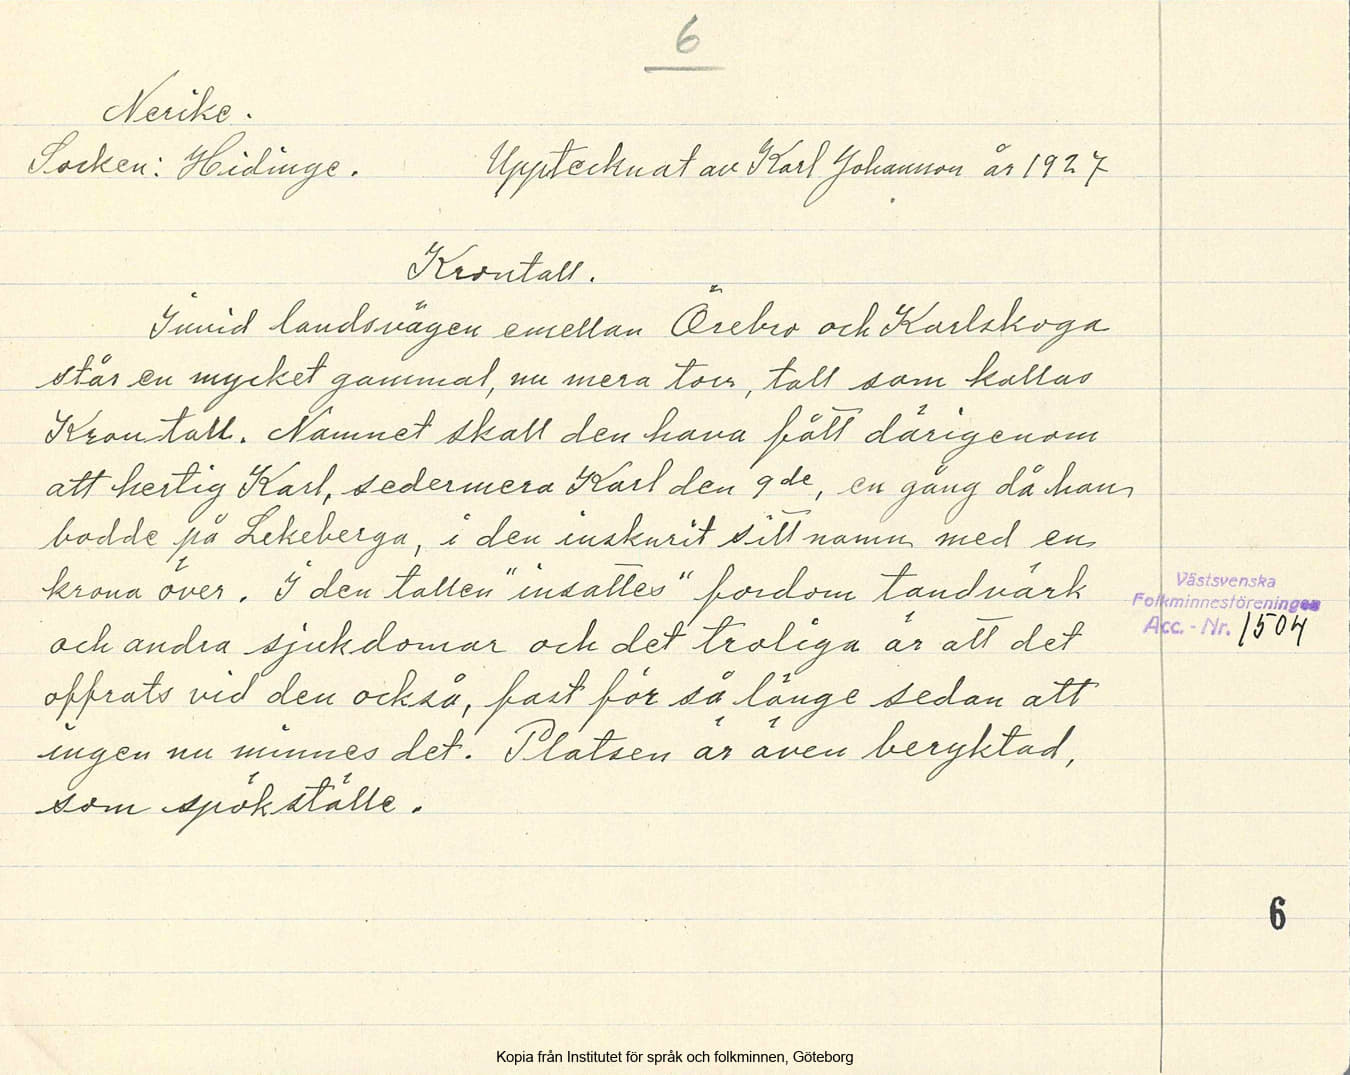 6
Nerike.
Socken: Hidinge. Upptecknat av Karl Johannson år 1927
Krontall.
Invid landsvägen emellan Örebro och Karlskoga
står en mycket gammal, nu mera torr, tall som kallas
Krontall. Namnet skall den hava fått därigenom
att hertig Karl, sedermera Karl den 9de, en gång då han
bodde på Lekeberga, i den inskurit sitt namn med en
krona över. I den tallen "insattes" fordom tandvärk
och andra sjukdomar och det troliga är att det
offrats vid den också, fast för så länge sedan att
ingen nu minnes det. Platsen är även beryktad,
som spökställe.
Västsvenska
Folkminnesföreningen
Acc. - Nr. 1504
6
Kopia från Institutet för språk och folkminnen, Göteborg